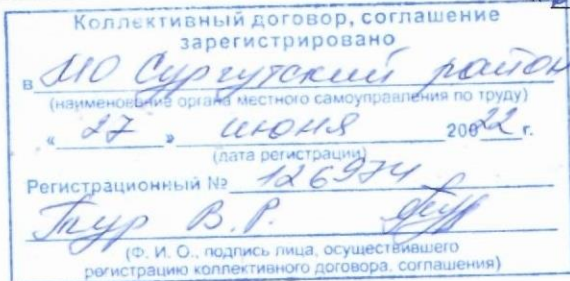 Коллективный договор, соглашение
зарегистрировано
в МО Сургутский район
(наименование органа местного самоуправления по труду)
« 27 » июня 20022 г.
(дата регистрации)
Регистрационный № 126974
Тур В.Р.
(Ф. И. О., подпись лица, осуществившего
регистрацию коллективного договора, соглашения)